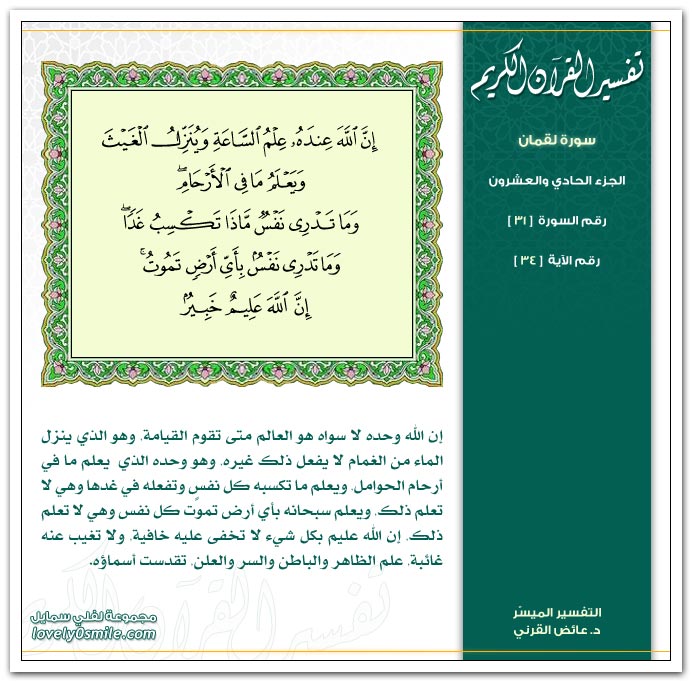 تفسير القرآن الكريم
سورة لقمان
الجزء الحادي والعشرون
رقم السورة [ ٣١ ]
رقم الآية [ ٣٤ ]
إِنَّ ٱللَّهَ عِندَهُۥ عِلْمُ ٱلسَّاعَةِ وَيُنَزِّلُ ٱلْغَيْثَ
وَيَعْلَمُ مَا فِى ٱلْأَرْحَامِۖ
وَمَا تَدْرِى نَفْسٌ مَّاذَا تَكْسِبُ غَدًاۖ
وَمَا تَدْرِى نَفْسٌۢ بِأَىِّ أَرْضٍ تَمُوتُۚ
إِنَّ ٱللَّهَ عَلِيمٌ خَبِيرٌۢ
إن الله وحده لا سواه هو العالم متى تقوم القيامة، وهو الذي ينزل
الماء من الغمام لا يفعل ذلك غيره، وهو وحده الذي يعلم ما في
أرحام الحوامل، ويعلم ما تكسبه كل نفس وتفعله في غدها وهي لا
تعلم ذلك، ويعلم سبحانه بأي أرض تموت كل نفس وهي لا تعلم
ذلك، إن الله عليم بكل شيء لا تخفى عليه خافية، ولا تغيب عنه
غائبة، علم الظاهر والباطن والسر والعلن، تقدست أسماؤه.
التفسير الميسّر
د. عائض القرني
مجموعة لفلي سمايل
lovely0smile.com
تفسير القرآن الكريم